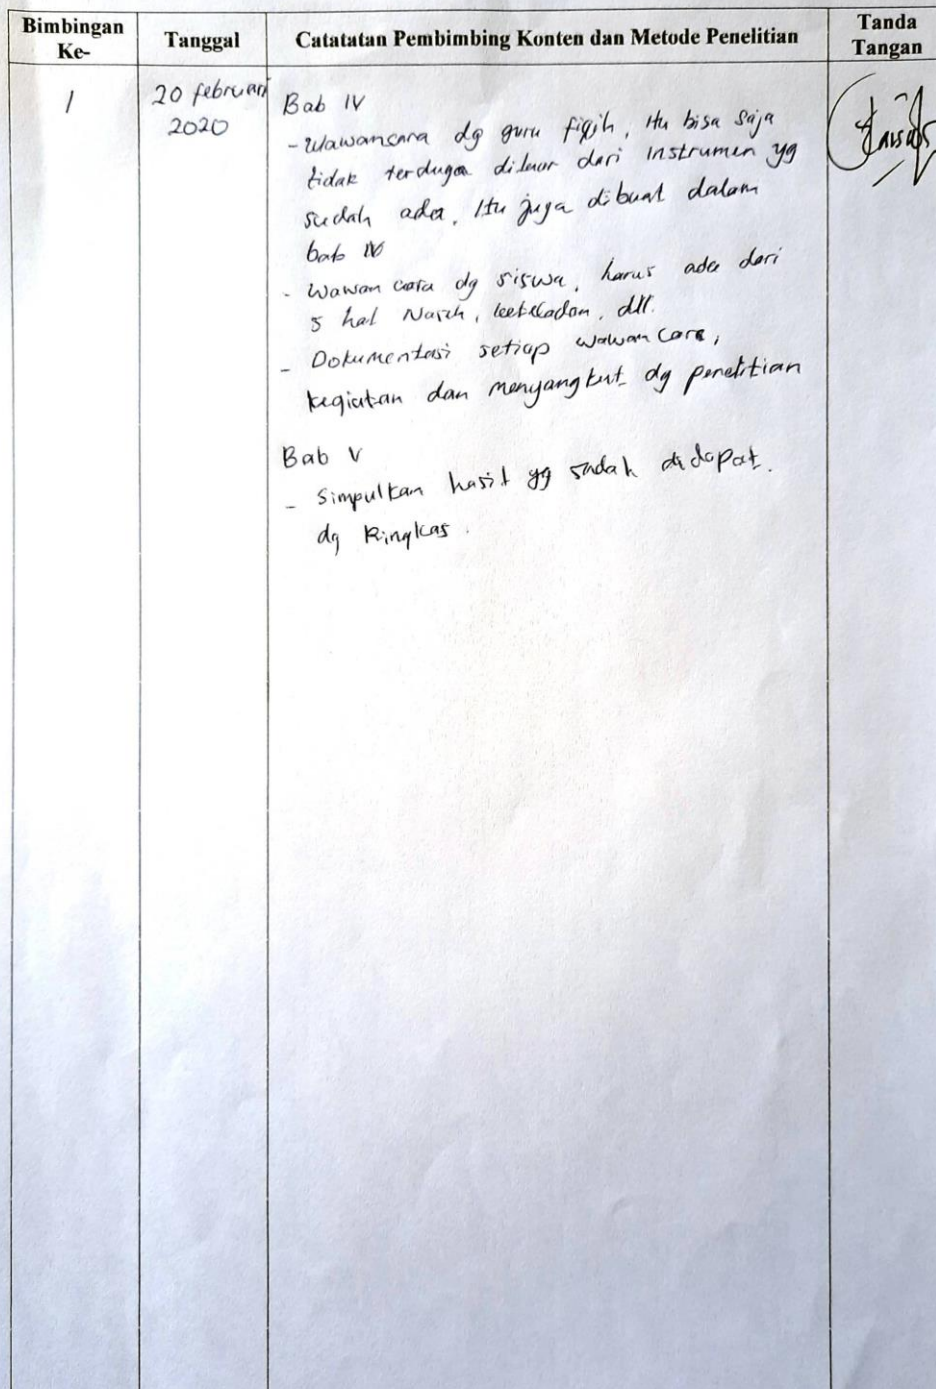 Bimbingan Ke-
Tanggal
Catatatan Pembimbing Konten dan Metode Penelitian
Tanda Tangan
1
20 februari
2020
Bab IV
- Wawancara dg guru fiqih, itu bisa saja
tidak terduga diluar dari instrumen yg
sudah ada. Itu juga dibuat dalam
bab IV
- Wawancara dg siswa, harus ada dari
5 hal Nasih, keteladan, dll.
- Dokumentasi setiap wawancara,
kegiatan dan menyangkut dg penelitian
Bab V
- Simpulkan hasil yg sudah didapat.
dg Ringkas.